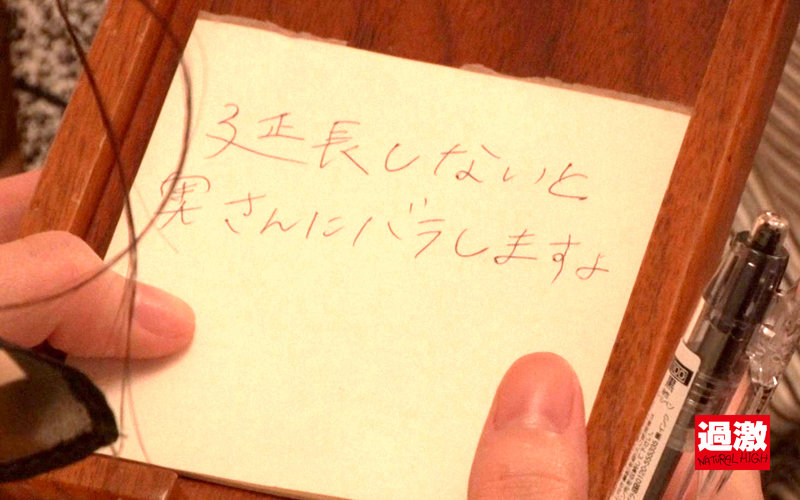 延長しないと
奥さんにバラしますよ
過激
NATURAL HIGH